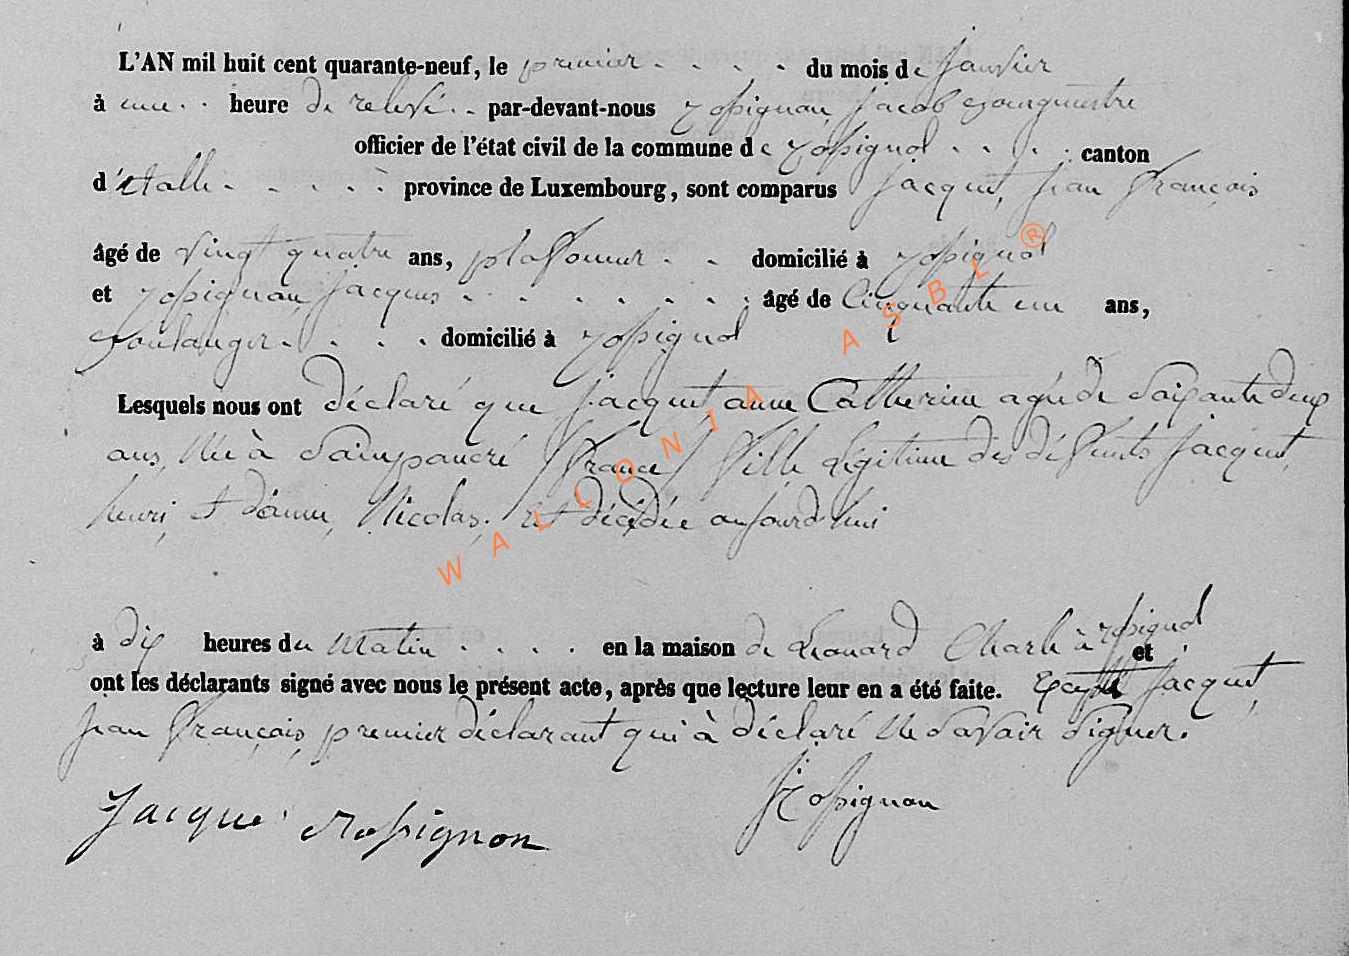 L'AN mil huit cent quarante-neuf, le premier . . . . du mois de Janvier
à une . . heure de relevé . . par-devant-nous Rossignon, Jacob Bourgmestre
officier de l'état civil de la commune de Rossignol . . . . canton
d'Etalle . . . . . province de Luxembourg, sont comparus Jacquet, Jean François
âgé de vingt quatre ans, plafoneur . . domicilié à Rossignol
et Rossignon, Jacques . . . . . . . . âgé de Cinquante un ans,
Boulanger . . . . domicilié à Rossignol
Lesquels nous ont déclaré que Jacquet anne Catherine agée de Soixante deux
ans, Née à Sainpancré /France/ Fille Légitime des défunts Jacquet,
henri, et d'anne, Nicolas. Est décédée aujourd'hui
à dix heures du Matin . . . . en la maison de Léonard Charle à Rossignol et
ont les déclarants signé avec nous le présent acte, après que lecture leur en a été faite. Excepté Jacquet,
Jean François, premier déclarant qui à déclaré Ne Savoir Signer.
Jacque Rossignon
J Rossignon
WALLONIA ASBL ®